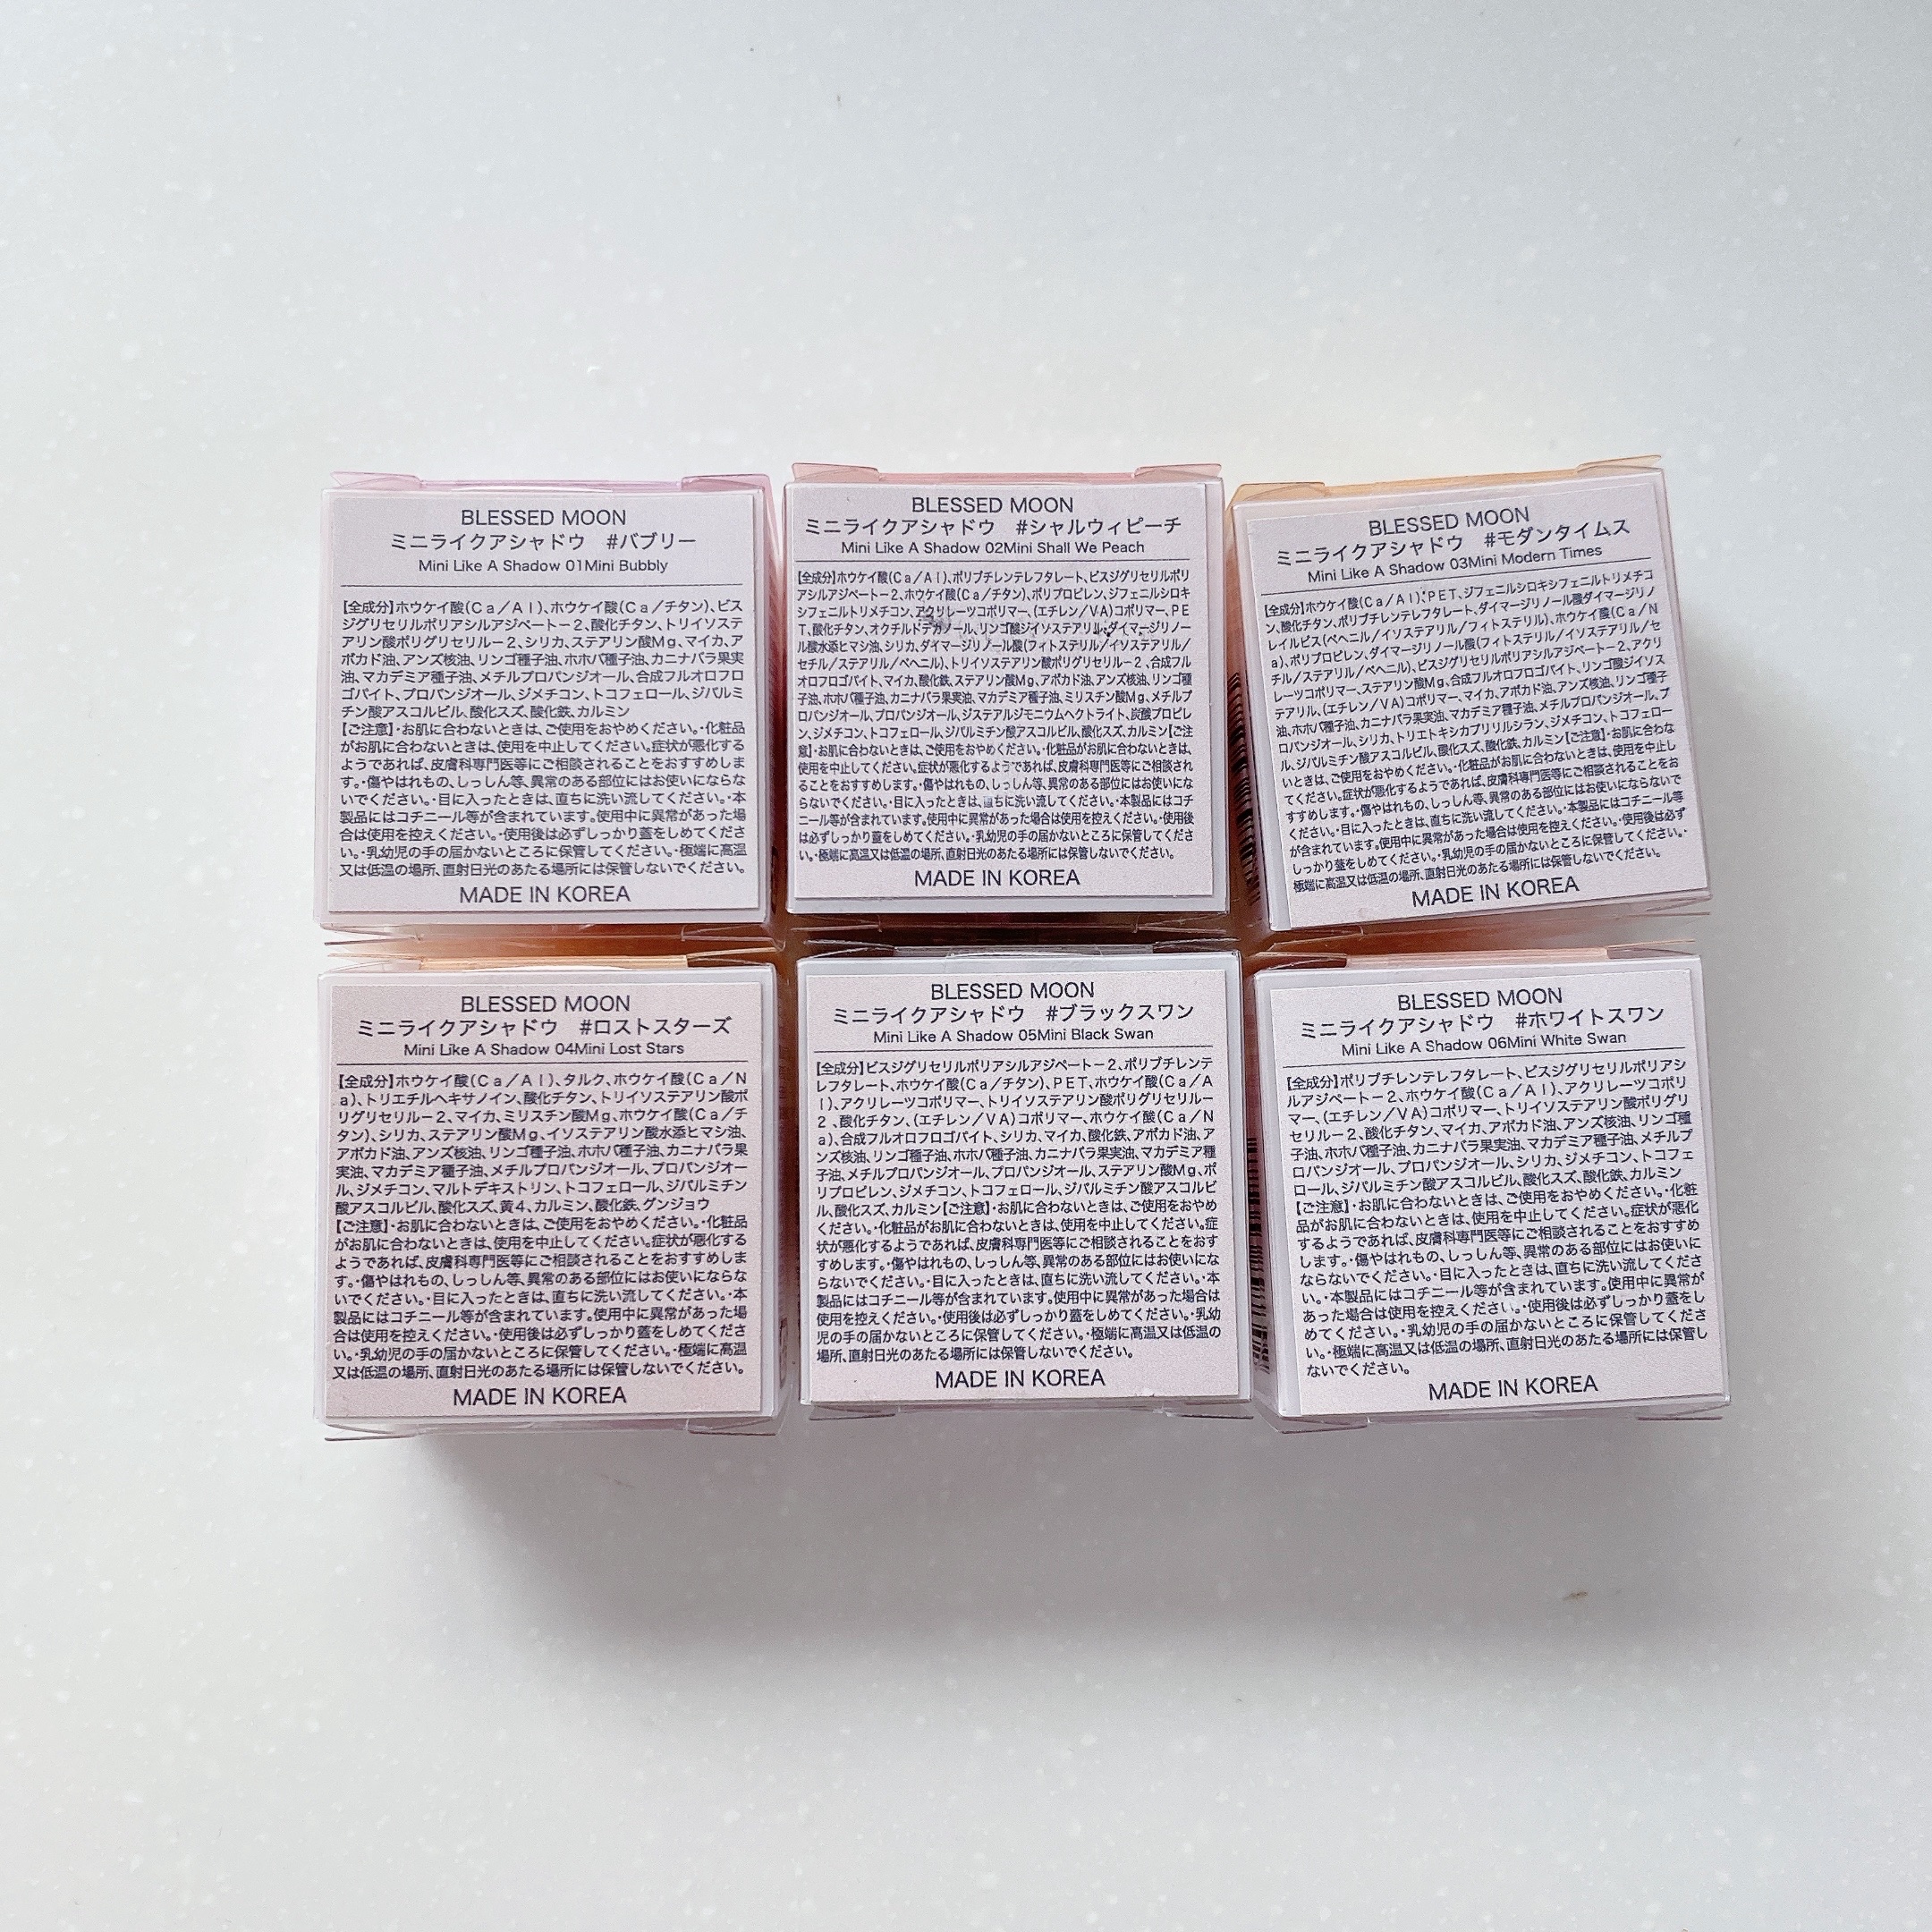 BLESSED MOON
ミニライクアシャドウ　#バブリー
Mini Like A Shadow 01Mini Bubbly
【全成分】ホウケイ酸(Ca／Al)、ホウケイ酸(Ca／チタン)、ビス
ジグリセリルポリアシルアジペート－2、酸化チタン、トリイソステ
アリン酸ポリグリセリル－2、シリカ、ステアリン酸Mg、マイカ、ア
ボカド油、アンズ核油、リンゴ種子油、ホホバ種子油、カニナバラ果実
油、マカデミア種子油、メチルプロパンジオール、合成フルオロフロ
ゴパイト、プロパンジオール、ジメチコン、トコフェロール、ジパルミ
チン酸アスコルビル、酸化スズ、酸化鉄、カルミン
【ご注意】・お肌に合わないときは、ご使用をおやめください。・化粧品
がお肌に合わないときは、使用を中止してください。症状が悪化する
ようであれば、皮膚科専門医等にご相談されることをおすすめしま
す。・傷やはれもの、しっしん等、異常のある部位にはお使いにならな
いでください。・目に入ったときは、直ちに洗い流してください。・本
製品にはコチニール等が含まれています。使用中に異常があった場
合は使用を控えください。・使用後は必ずしっかり蓋をしめてくださ
い。・乳幼児の手の届かないところに保管してください。・極端に高温
又は低温の場所、直射日光のあたる場所には保管しないでください。
MADE IN KOREA
BLESSED MOON
ミニライクアシャドウ　#シャルウィピーチ
Mini Like A Shadow 02Mini Shall We Peach
【全成分】ホウケイ酸(Ca／Al)、ポリブチレンテレフタレート、ビスジグリセリルポリ
アシルアジペート－2、ホウケイ酸(Ca／チタン)、ポリプロピレン、ジフェニルシロキ
シフェニルトリメチコン、アクリレーツコポリマー、(エチレン／VA)コポリマー、PE
T、酸化チタン、オクチルドデカノール、リンゴ酸ジイソステアリル、ダイマージリノー
ル酸水添ヒマシ油、シリカ、ダイマージリノール酸(フィトステリル／イソステアリル／
セチル／ステアリル／ベヘニル)、トリイソステアリン酸ポリグリセリル－2 、合成フル
オロフロゴパイト、マイカ、酸化鉄、ステアリン酸Mg、アボカド油、アンズ核油、リンゴ種
子油、ホホバ種子油、カニナバラ果実油、マカデミア種子油、ミリスチン酸Mg、メチルプ
ロパンジオール、プロパンジオール、ジステアルジモニウムヘクトライト、炭酸プロピレ
ン、ジメチコン、トコフェロール、ジパルミチン酸アスコルビル、酸化スズ、カルミン【ご注
意】・お肌に合わないときは、ご使用をおやめください。・化粧品がお肌に合わないときは、
使用を中止してください。症状が悪化するようであれば、皮膚科専門医等にご相談され
ることをおすすめします。・傷やはれもの、しっしん等、異常のある部位にはお使いにな
らないでください。・目に入ったときは、直ちに洗い流してください。・本製品にはコチ
ニール等が含まれています。使用中に異常があった場合は使用を控えください。・使用後
は必ずしっかり蓋をしめてください。・乳幼児の手の届かないところに保管してくださ
い。・極端に高温又は低温の場所、直射日光のあたる場所には保管しないでください。
MADE IN KOREA
BLESSED MOON
ミニライクアシャドウ　#モダンタイムス
Mini Like A Shadow 03Mini Modern Times
【全成分】ホウケイ酸(Ca／Al)、PET、ジフェニルシロキシフェニルトリメチコ
ン、酸化チタン、ポリブチレンテレフタレート、ダイマージリノール酸ダイマージリノ
レイルビス(ベヘニル／イソステアリル／フィトステリル)、ホウケイ酸(Ca／N
a)、ポリプロピレン、ダイマージリノール酸(フィトステリル／イソステアリル／セ
チル／ステアリル／ベヘニル)、ビスジグリセリルポリアシルアジペート－2、アクリ
レーツコポリマー、ステアリン酸Mg、合成フルオロフロゴパイト、リンゴ酸ジイソス
テアリル、(エチレン／VA)コポリマー、マイカ、アボカド油、アンズ核油、リンゴ種子
油、ホホバ種子油、カニナバラ果実油、マカデミア種子油、メチルプロパンジオール、プ
ロパンジオール、シリカ、トリエトキシカプリリルシラン、ジメチコン、トコフェロー
ル、ジパルミチン酸アスコルビル、酸化スズ、酸化鉄、カルミン【ご注意】・お肌に合わな
いときは、ご使用をおやめください。・化粧品がお肌に合わないときは、使用を中止し
てください。症状が悪化するようであれば、皮膚科専門医等にご相談されることをお
すすめします。・傷やはれもの、しっしん等、異常のある部位にはお使いにならないで
ください。・目に入ったときは、直ちに洗い流してください。・本製品にはコチニール等
が含まれています。使用中に異常があった場合は使用を控えください。・使用後は必ず
しっかり蓋をしめてください。・乳幼児の手の届かないところに保管してください。・
極端に高温又は低温の場所、直射日光のあたる場所には保管しないでください。
MADE IN KOREA
BLESSED MOON
ミニライクアシャドウ　#ロストスターズ
Mini Like A Shadow 04Mini Lost Stars
【全成分】ホウケイ酸(Ca／Al)、タルク、ホウケイ酸(Ca／N
a)、トリエチルヘキサノイン、酸化チタン、トリイソステアリン酸ポ
リグリセリル－2、マイカ、ミリスチン酸Mg、ホウケイ酸(Ca／チ
タン)、シリカ、ステアリン酸Mg、イソステアリン酸水添ヒマシ油、
アボカド油、アンズ核油、リンゴ種子油、ホホバ種子油、カニナバラ果
実油、マカデミア種子油、メチルプロパンジオール、プロパンジオー
ル、ジメチコン、マルトデキストリン、トコフェロール、ジパルミチン
酸アスコルビル、酸化スズ、黄4、カルミン、酸化鉄、グンジョウ
【ご注意】・お肌に合わないときは、ご使用をおやめください。・化粧品
がお肌に合わないときは、使用を中止してください。症状が悪化する
ようであれば、皮膚科専門医等にご相談されることをおすすめしま
す。・傷やはれもの、しっしん等、異常のある部位にはお使いにならな
いでください。・目に入ったときは、直ちに洗い流してください。・本
製品にはコチニール等が含まれています。使用中に異常があった場
合は使用を控えください。・使用後は必ずしっかり蓋をしめてくださ
い。・乳幼児の手の届かないところに保管してください。・極端に高温
又は低温の場所、直射日光のあたる場所には保管しないでください。
MADE IN KOREA
BLESSED MOON
ミニライクアシャドウ　#ブラックスワン
Mini Like A Shadow 05Mini Black Swan
【全成分】ビスジグリセリルポリアシルアジペート－2、ポリブチレンテ
レフタレート、ホウケイ酸(Ca／チタン)、PET、ホウケイ酸(Ca／A
l)、アクリレーツコポリマー、トリイソステアリン酸ポリグリセリル－
2 、酸化チタン、(エチレン／VA)コポリマー、ホウケイ酸(Ca／N
a)、合成フルオロフロゴパイト、シリカ、マイカ、酸化鉄、アボカド油、ア
ンズ核油、リンゴ種子油、ホホバ種子油、カニナバラ果実油、マカデミア種
子油、メチルプロパンジオール、プロパンジオール、ステアリン酸Mg、ポ
リプロピレン、ジメチコン、トコフェロール、ジパルミチン酸アスコルビ
ル、酸化スズ、カルミン【ご注意】・お肌に合わないときは、ご使用をおやめ
ください。・化粧品がお肌に合わないときは、使用を中止してください。症
状が悪化するようであれば、皮膚科専門医等にご相談されることをおす
すめします。・傷やはれもの、しっしん等、異常のある部位にはお使いにな
らないでください。・目に入ったときは、直ちに洗い流してください。・本
製品にはコチニール等が含まれています。使用中に異常があった場合は
使用を控えください。・使用後は必ずしっかり蓋をしめてください。・乳幼
児の手の届かないところに保管してください。・極端に高温又は低温の
場所、直射日光のあたる場所には保管しないでください。
MADE IN KOREA
BLESSED MOON
ミニライクアシャドウ　#ホワイトスワン
Mini Like A Shadow 06Mini White Swan
【全成分】ポリブチレンテレフタレート、ビスジグリセリルポリアシ
ルアジペート－2、ホウケイ酸(Ca／Al)、アクリレーツコポリ
マー、(エチレン／VA)コポリマー、トリイソステアリン酸ポリグリ
セリル－2、酸化チタン、マイカ、アボカド油、アンズ核油、リンゴ種
子油、ホホバ種子油、カニナバラ果実油、マカデミア種子油、メチルプ
ロパンジオール、プロパンジオール、シリカ、ジメチコン、トコフェ
ロール、ジパルミチン酸アスコルビル、酸化スズ、酸化鉄、カルミン
【ご注意】・お肌に合わないときは、ご使用をおやめください。・化粧
品がお肌に合わないときは、使用を中止してください。症状が悪化
するようであれば、皮膚科専門医等にご相談されることをおすすめ
します。・傷やはれもの、しっしん等、異常のある部位にはお使いに
ならないでください。・目に入ったときは、直ちに洗い流してくださ
い。・本製品にはコチニール等が含まれています。使用中に異常が
あった場合は使用を控えください。・使用後は必ずしっかり蓋をし
めてください。・乳幼児の手の届かないところに保管してくださ
い。・極端に高温又は低温の場所、直射日光のあたる場所には保管し
ないでください。
MADE IN KOREA